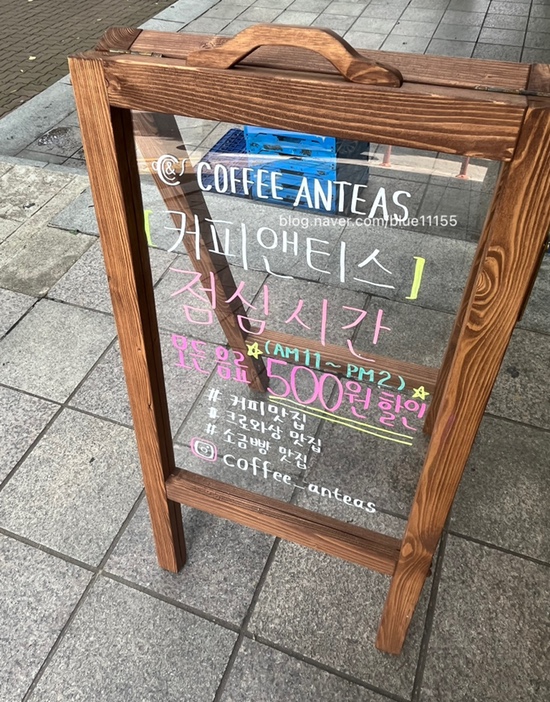 C&S COFFEE ANTEAS
blog.naver.com/blue11155
[커피앤티스]
점심시간
(AM11~PM2)
모든음료 500원 할인
# 커피맛집
# 크로와상 맛집
# 소금빵 맛집
coffee_anteas